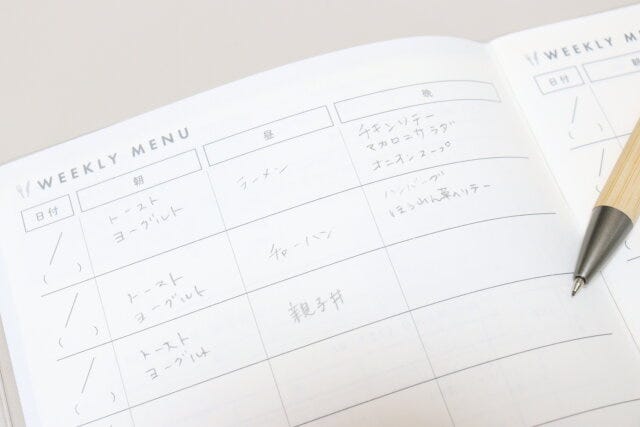 WEEKLY MENU
日付
朝
昼
晩
/
( )
トースト
ヨーグルト
ラーメン
チキンソテー
マカロニサラダ
オニオンスープ
/
( )
トースト
ヨーグルト
チャーハン
ハンバーグ
ほうれん草ソテー
/
( )
トースト
ヨーグルト
親子丼
WEEKLY MEN
日付
朝
/
( )
/
( )